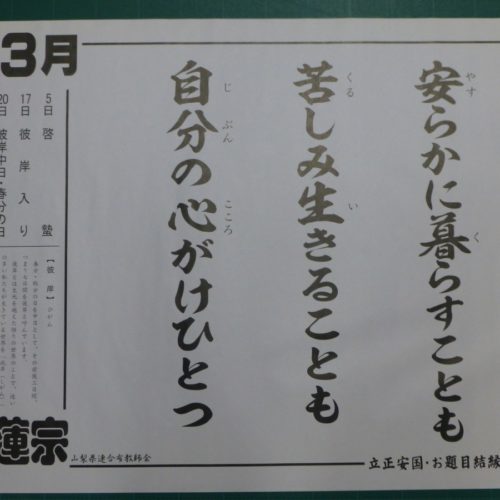 3月
安らかに暮らすことも
やす
く
苦しみ生きることも
くる
い
自分の心がけひとつ
じ
ぶん
こころ
5日 啓蟄
17日 彼岸入り
20日 彼岸中日・春分の日
【彼岸】ひがん
蓮宗
山梨県連合布教師会
立正安国・お題目結縁